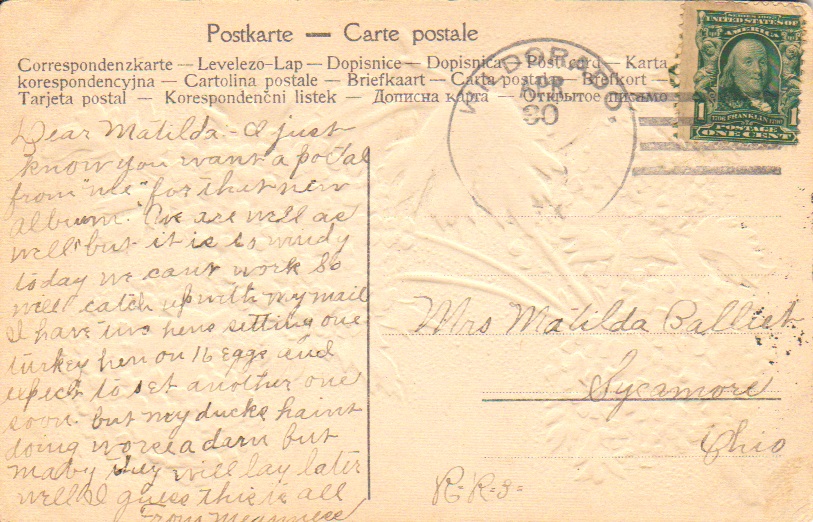 Postkarte — Carte postale
Correspondenzkarte — Levelezo-Lap — Dopisnice — Dopisnica — Postcard — Karta
korespondencyjna — Cartolina postale — Briefkaart — Carta postal — Brefkort —
Tarjeta postal — Korespondenční listek — Дописна карта — Открытое письмо
SERIES 1902
UNITED STATES OF
AMERICA
1 FRANKLIN 1
POSTAGE
ONE CENT
APR
30
Dear Matilda - I just
know you want a postal
from "me" for that new
album. We are well as
well but it is so windy
today we cant work So
will catch up with my mail
I have two hens sitting one
turkey hen on 16 eggs and
expect to set another one
soon. but my ducks haint
doing worsea darn but
maby they will lay later
well I guess this is all
From
Mrs Matilda Balliet
Sycamore
Ohio
R-R-3-